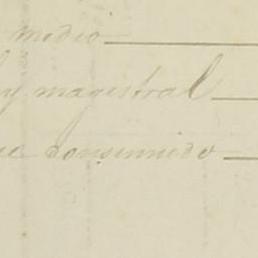 medio
y magistral
consumido